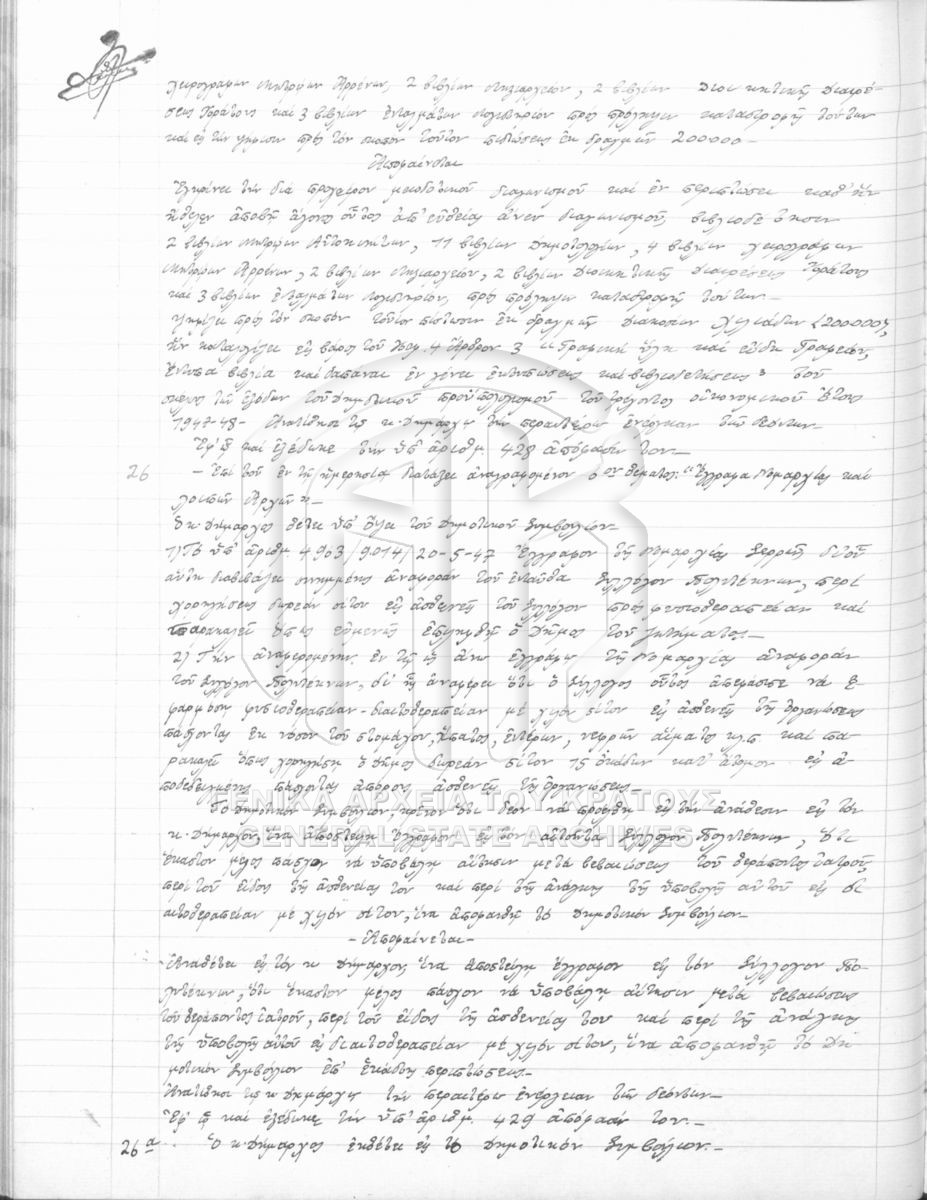 χειρογράφων Μητρώων Αρρένων, 2 βιβλίων Ληξιαρχείων, 2 βιβλίων Διοικητικής Διαιρέ-
σεως Κράτους και 3 βιβλίων ενταλμάτων Λογιστηρίου προς πρόληψιν καταστροφής τούτων
και εις την ψήφισιν προς τον σκοπόν τούτον πιστώσεως εκ δραχμών 200000-
Αποφαίνεται
Εγκρίνει την διά προχείρου μειοδοτικού διαγωνισμού και εν περιπτώσει καθ' ην
ήθελεν αποβή άγονος ούτος απ' ευθείας άνευ διαγωνισμού, βιβλιοδέτησιν
2 βιβλίων Μητρώων Αυτοκινήτων, 11 βιβλίων Δημοτολογίων, 4 βιβλίων χειρογράφων
Μητρώων Αρρένων, 2 βιβλίων Ληξιαρχείων, 2 βιβλίων Διοικητικής Διαιρέσεως Κράτους
και 3 βιβλίων ενταλμάτων Λογιστηρίου, προς πρόληψιν καταστροφής τούτων.-
Ψηφίζει προς τον σκοπόν τούτον πίστωσιν εκ δραχμών Διακοσίων Χιλιάδων (200000),
ην καταλογίζει εις βάρος του Κεφ. 4 Άρθρον 3 "Γραφική ύλη και είδη Γραφείου,
έντυπα βιβλία και δαπάναι εν γένει εκτυπώσεως και βιβλιοδετήσεως" του
σκέλους των εξόδων του Δημοτικού προϋπολογισμού του τρέχοντος οικονομικού έτους
1947-48- Ανατίθησι τω κ. Δημάρχω την περαιτέρω ενέργειαν των δεόντων-
Εφ' ω και εξέδωκε την υπ' αριθμ. 428 απόφασίν του.-
26 - Επί του εν τη ημερησία διατάξει αναγραφομένου θέματος: "Έγγραφα Νομαρχίας και
λοιπών Αρχών"-
Ο κ. Δήμαρχος θέτει υπ' όψει του Δημοτικού Συμβουλίου-
1) Το υπ' αριθμ 4903/9014/20-5-47 έγγραφον της Νομαρχίας Σερρών, δι' ου
αύτη διαβιβάζει συνημμένως αναφοράν του ενταύθα Συλλόγου Πολυτέκνων, περί
χορηγήσεως δωρεάν σίτου εις ασθενείς του Συλλόγου προς φυσιοθεραπείαν και
παρακαλεί όπως ευμενώς επιληφθή ο Δήμος του ζητήματος.-
2) Την αναφερομένην εν τω ως άνω εγγράφω της Νομαρχίας αναφοράν
του Συλλόγου Πολυτέκνων, δι' ης αναφέρει ότι ο Σύλλογος ούτος απεφάσισε να ε-
φαρμόση φυσιοθεραπείαν-διαιτοθεραπείαν με χυλόν σίτου εις ασθενείς της οργανώσεως
πάσχοντας εκ νόσου του στομάχου, ήπατος, εντέρων, νεφρών αίματος κλπ και πα-
ρακαλεί όπως χορηγήση ο Δήμος δωρεάν σίτον 15 οκάδων κατ' άτομον εις α-
ποδεδειγμένως πάσχοντας απόρους ασθενείς της Οργανώσεως
ΓΕΝΙΚΑ ΑΡΧΕΙΑ ΤΟΥ ΚΡΑΤΟΥΣ
Το Δημοτικόν Συμβούλιον, κρίνον ότι δέον να προβή εις την ανάθεσιν εις τον
GENERAL STATE ARCHIVES
κ. Δήμαρχον ίνα αποστείλη έγγραφον εις τον Σύλλογον Πολυτέκνων, ότι
έκαστον μέλος πάσχον να υποβάλη αίτησιν μετά βεβαιώσεως του θεράποντος ιατρού,
περί του είδους της ασθενείας του και περί της ανάγκης της υποβολής αυτού εις δι-
αιτοθεραπείαν με χυλόν σίτου, ίνα αποφανθή το Δημοτικόν Συμβούλιον-
-Αποφαίνεται-
Αναθέτει εις τον κ Δήμαρχον, ίνα αποστείλη έγγραφον εις τον Σύλλογον Πο-
λυτέκνων, ότι έκαστον μέλος πάσχον να υποβάλη αίτησιν μετά βεβαιώσεως
του θεράποντος ιατρού, περί του είδους της ασθενείας του και περί της ανάγκης
της υποβολής αυτού εις διαιτοθεραπείαν με χυλόν σίτου, ίνα αποφανθή το Δη-
μοτικόν Συμβούλιον εφ' εκάστης περιπτώσεως.-
Ανατίθησι τω κ Δημάρχω την περαιτέρω ενέργειαν των δεόντων-
Εφ' ω και εξέδωκε την υπ' αριθμ. 429 απόφασίν του.-
26α. Ο κ Δήμαρχος εκθέτει εις το Δημοτικόν Συμβούλιον.-